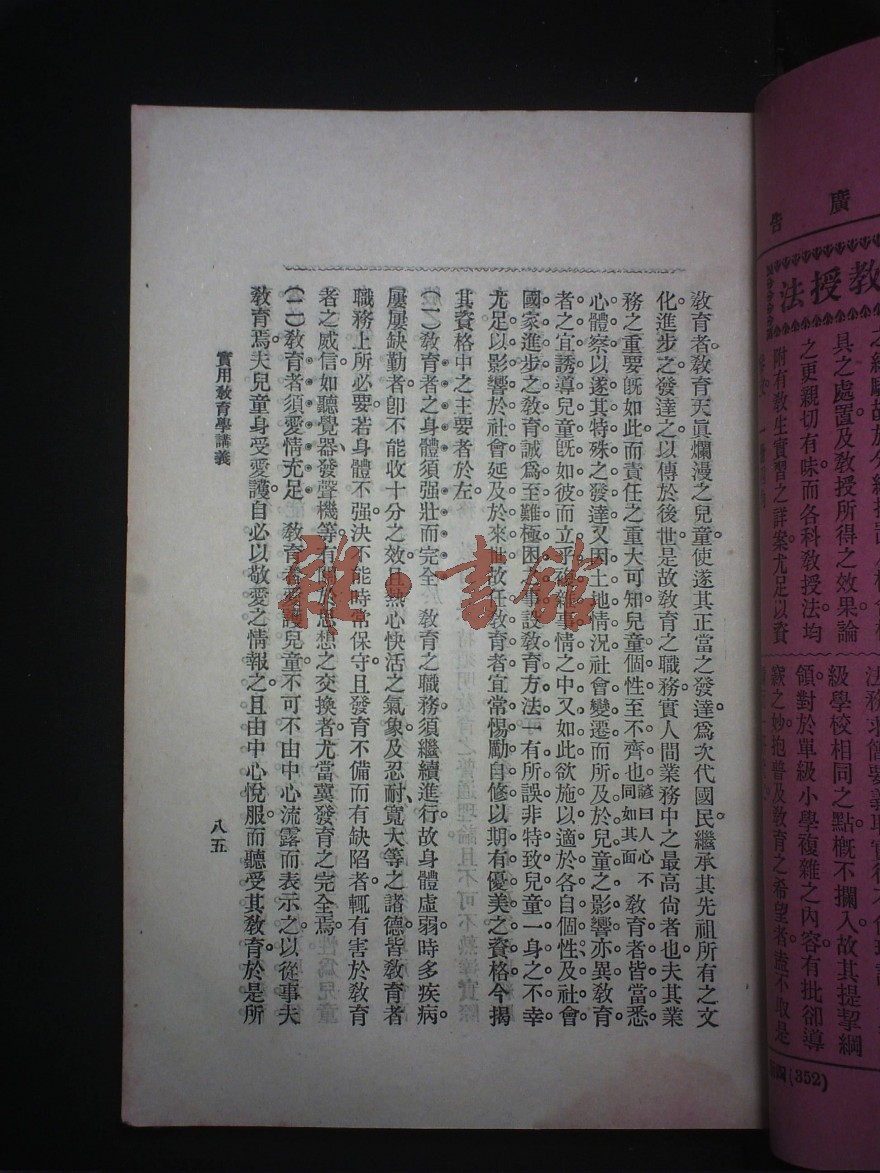 教育者教育天眞爛漫之兒童使遂其正當之發達爲次代國民繼承其先祖所有之文
化進步之發達之以傳於後世是故教育之職務實人間業務中之最高尙者也夫其業
務之重要旣如此而責任之重大可知兒童個性至不齊也諺曰人心不同如其面教育者皆當悉
心體察以遂其特殊之發達又因土地情況社會變遷而所及於兒童之影響亦異教育
者之宜誘導兒童旣如彼而立乎複雜事情之中又如此欲施以適於各自個性及社會
國家進步之教育誠爲至難極困之事設教育方法一有所誤非特致兒童一身之不幸
尤足以影響於社會延及於來世故任教育者宜常惕勵自修以期有優美之資格今揭
其資格中之主要者於左
(一)教育者之身體須强壯而完全　教育之職務須繼續進行故身體虛弱時多疾病
屢屢缺勤者卽不能收十分之效且熱心快活之氣象及忍耐寬大等之諸德皆教育者
職務上所必要若身體不强決不能時常保守且發育不備而有缺陷者輒有害於教育
者之威信如聽覺器發聲機等有關於思想之交換者尤當冀發育之完全焉
(二)教育者須愛情充足　教育者愛護兒童不可不由中心流露而表示之以從事夫
教育焉夫兒童身受愛護自必以敬愛之情報之且由中心悅服而聽受其教育於是所
實用教育學講義
八五
雜·書館
廣告
教授法
具之處置及教授所得之效果論
之更親切有味而各科教授法均
附有教生實習之詳案尤足以資
級學校相同之點槪不攔入故其提挈綱
領對於單級小學複雜之內容有批卻導
窾之妙抱普及教育之希望者盍不取是
(352)